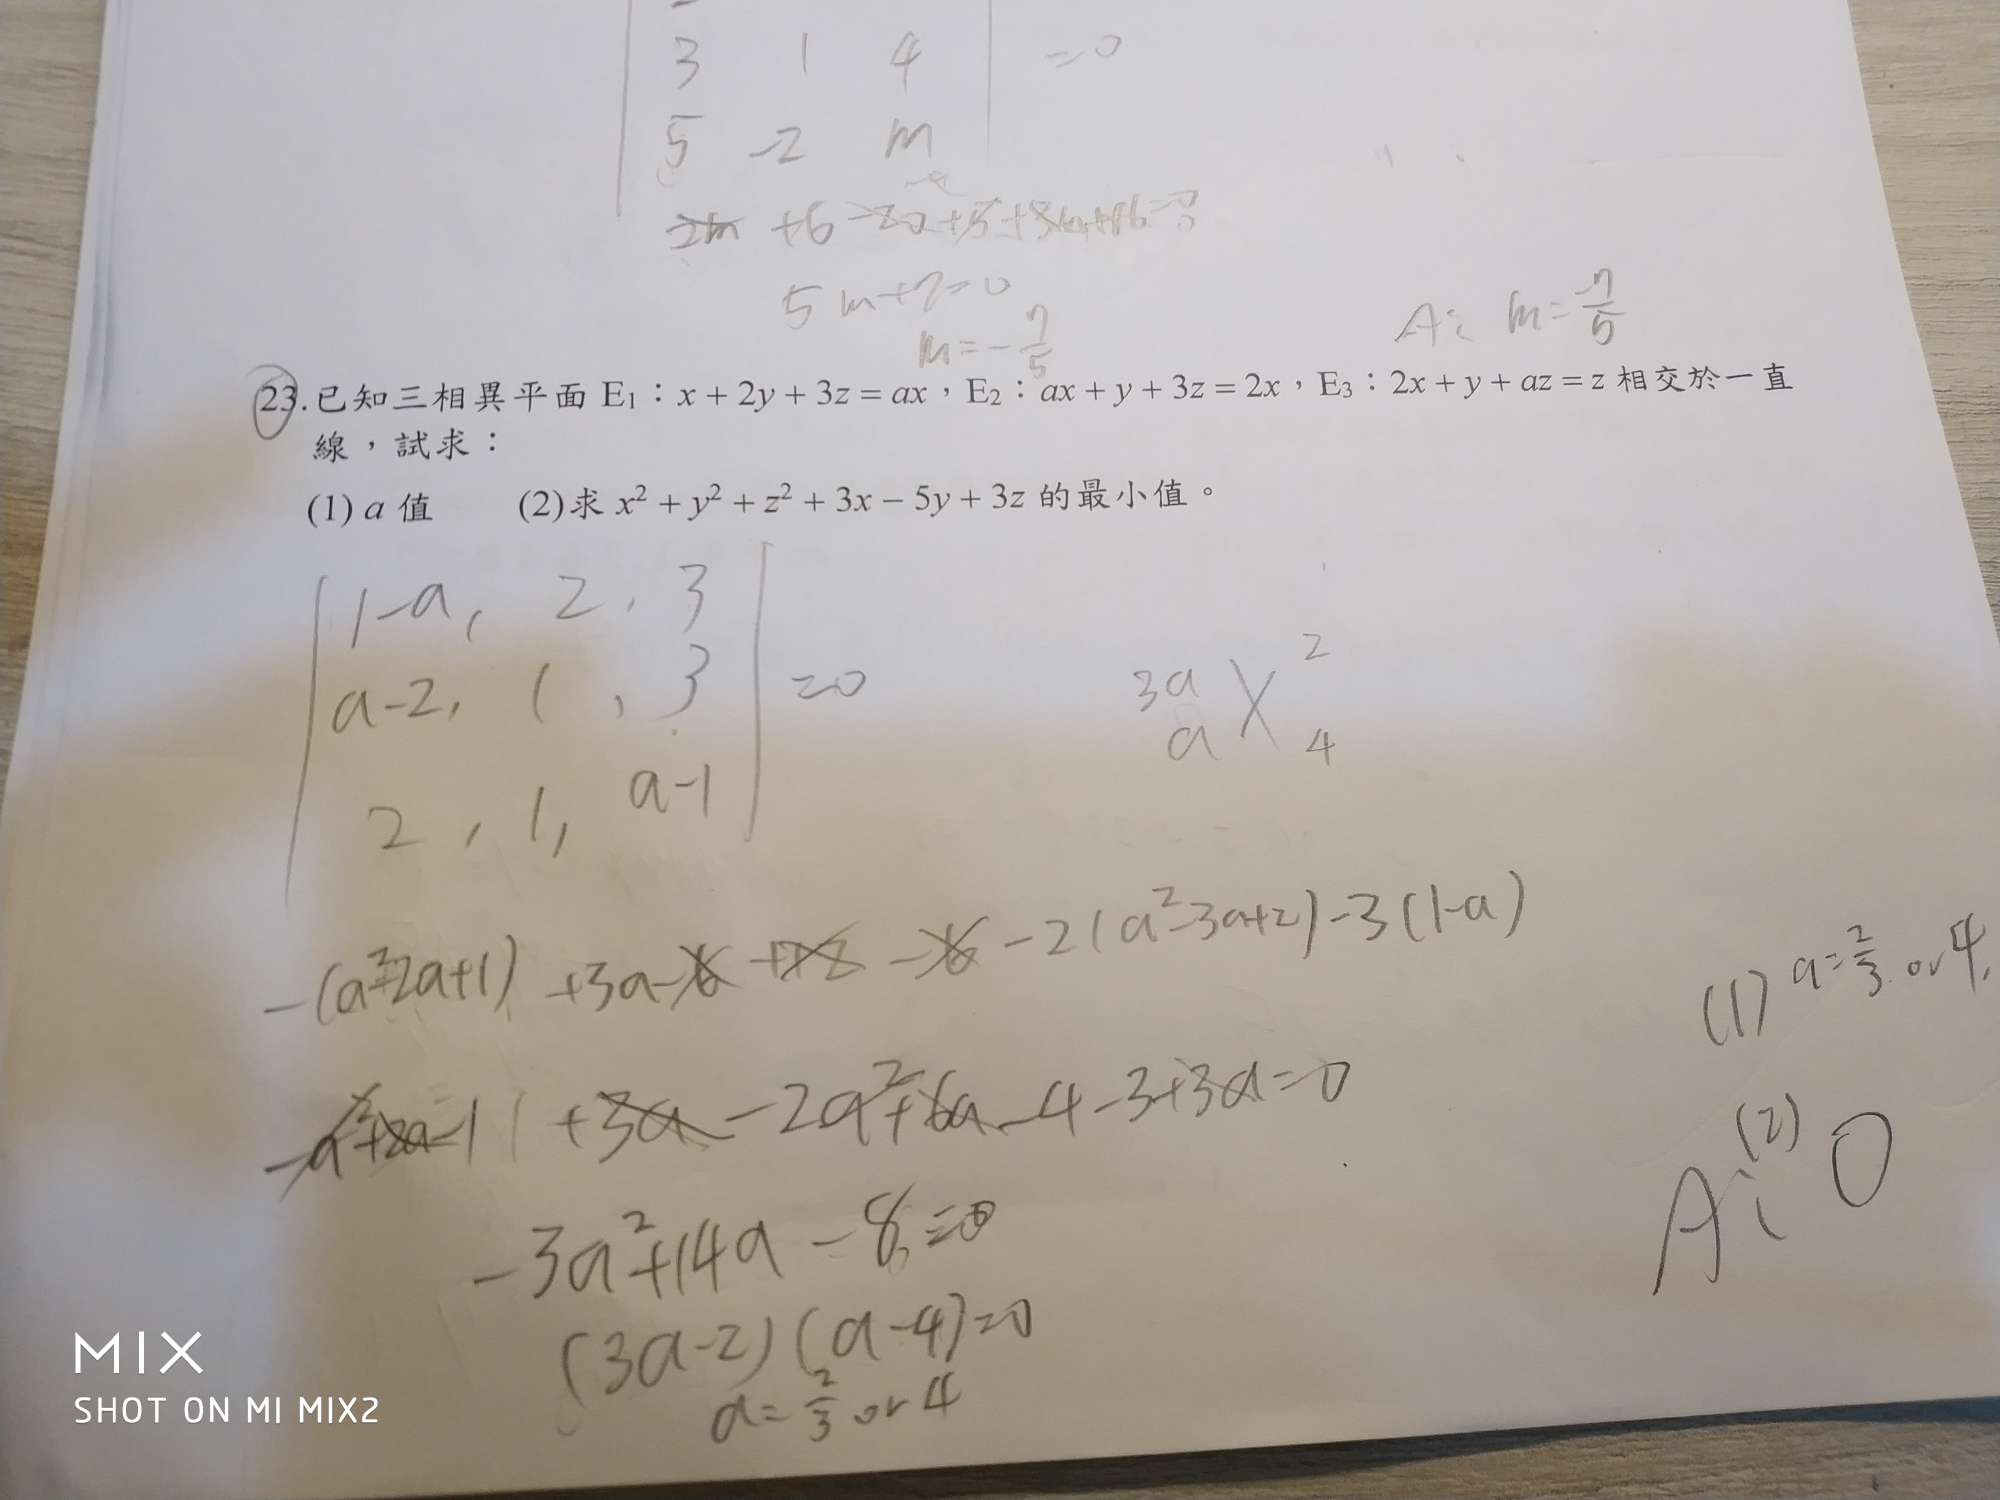 3 1 4 =0
5 -2 m
5m+7=0
m=-7/5
A: m=-7/5
23.已知三相異平面 E₁：x + 2y + 3z = ax，E₂：ax + y + 3z = 2x，E₃：2x + y + az = z 相交於一直
線，試求：
(1) a 值 (2)求 x² + y² + z² + 3x − 5y + 3z 的最小值。
1-a, 2, 3
a-2, 1, 3 =0
2, 1, a-1
3a 2
a 4
-(a²-2a+1) +3a-6 +12 -6 -2(a²-3a+2)-3(1-a)
-a²+2a-1 +3a -2a²+6a-4-3+3a=0
-3a²+14a-8=0
(3a-2)(a-4)=0
a=2/3 or 4
(1) a=2/3 or 4,
(2)
A: 0
MIX
SHOT ON MI MIX2